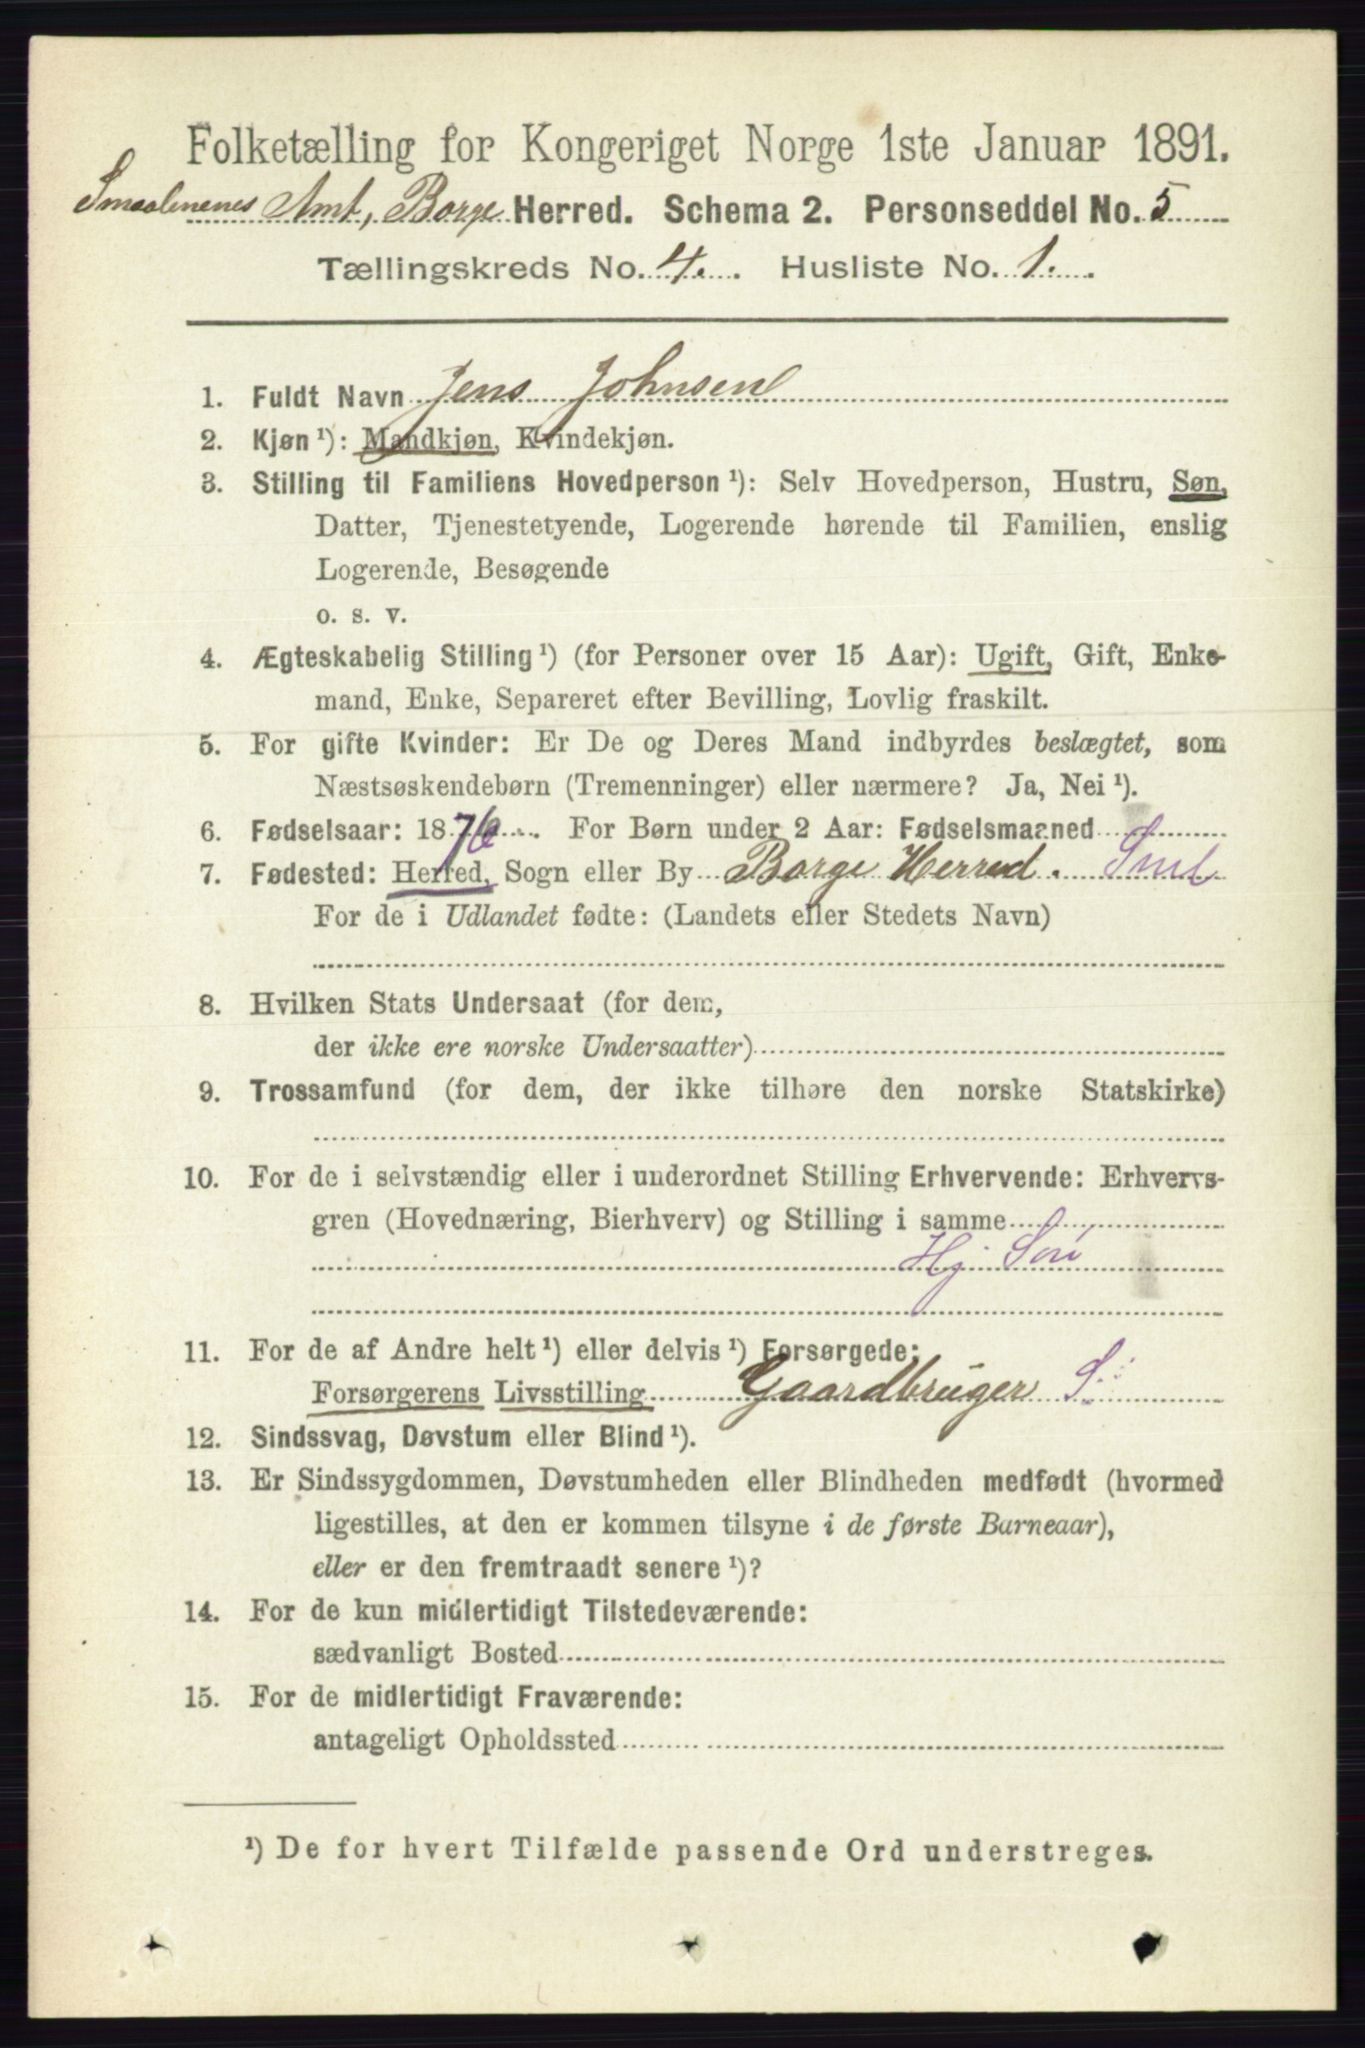 Folketælling for Kongeriget Norge 1ste Januar 1891.
Smaalenenes Amt, Borge Herred. Schema 2. Personseddel No. 5
Tællingskreds No. 4. Husliste No. 1.
1. Fuldt Navn Jens Johnsen
2. Kjøn ¹): Mandkjøn, Kvindekjøn.
3. Stilling til Familiens Hovedperson ¹): Selv Hovedperson, Hustru, Søn,
Datter, Tjenestetyende, Logerende hørende til Familien, enslig
Logerende, Besøgende
o. s. v.
4. Ægteskabelig Stilling ¹) (for Personer over 15 Aar): Ugift, Gift, Enke-
mand, Enke, Separeret efter Bevilling, Lovlig fraskilt.
5. For gifte Kvinder: Er De og Deres Mand indbyrdes beslægtet, som
Næstsøskendebørn (Tremenninger) eller nærmere? Ja, Nei ¹).
6. Fødselsaar: 1876. For Børn under 2 Aar: Fødselsmaaned
7. Fødested: Herred, Sogn eller By Borge Herred. Sml
For de i Udlandet fødte: (Landets eller Stedets Navn)
8. Hvilken Stats Undersaat (for dem,
der ikke ere norske Undersaatter)
9. Trossamfund (for dem, der ikke tilhøre den norske Statskirke)
10. For de i selvstændig eller i underordnet Stilling Erhvervende: Erhvervs-
gren (Hovednæring, Bierhverv) og Stilling i samme
Hj Søn
11. For de af Andre helt ¹) eller delvis ¹) Forsørgede:
Forsørgerens Livsstilling Gaardbruger S.
12. Sindssvag, Døvstum eller Blind ¹).
13. Er Sindssygdommen, Døvstumheden eller Blindheden medfødt (hvormed
ligestilles, at den er kommen tilsyne i de første Barneaar),
eller er den fremtraadt senere ¹)?
14. For de kun midlertidigt Tilstedeværende:
sædvanligt Bosted
15. For de midlertidigt Fraværende:
antageligt Opholdssted
¹) De for hvert Tilfælde passende Ord understreges.